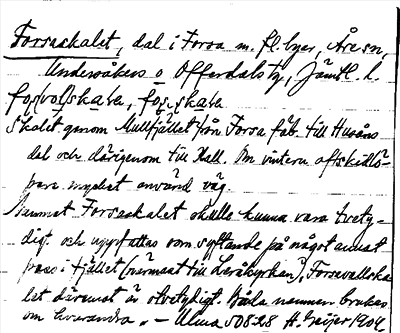 Forsaskalet, dal i Forsa m. fl. byar, Åre sn,
Undersåkers o Offerdals tg, Jämtl. l.
Skalet genom Mullfjället från Forsa fäb. till Husåns
dal och därigenom till Kall. Om vintern oftskidlö-
pare mycket använd väg.
Namnet Forsaskalet skulle kunna vara tvety-
digt och uppfattas som syftande på något annat
pass i fjället (närmast till Leråkyrkan?), Forsavallska-
let däremot är otvetydigt. Båda namnen brukas
om hvarandra". — Ulma 508:28 H. Geijer 1904